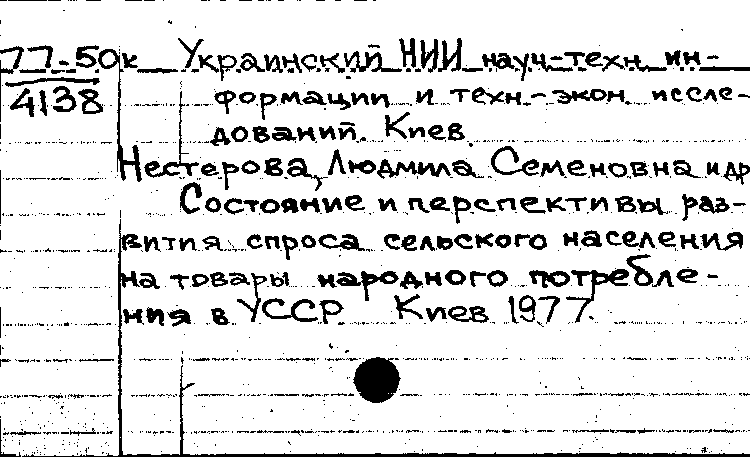 77-50к Украинский НИИ науч-техн. ин-
4138 формации и техн.-экон. иссле-
дований. Киев.
Нестерова, Людмила Семеновна и др
Состояние и перспективы раз-
вития спроса сельского населения
на товары народного потребле-
ния в УССР. Киев 1977.